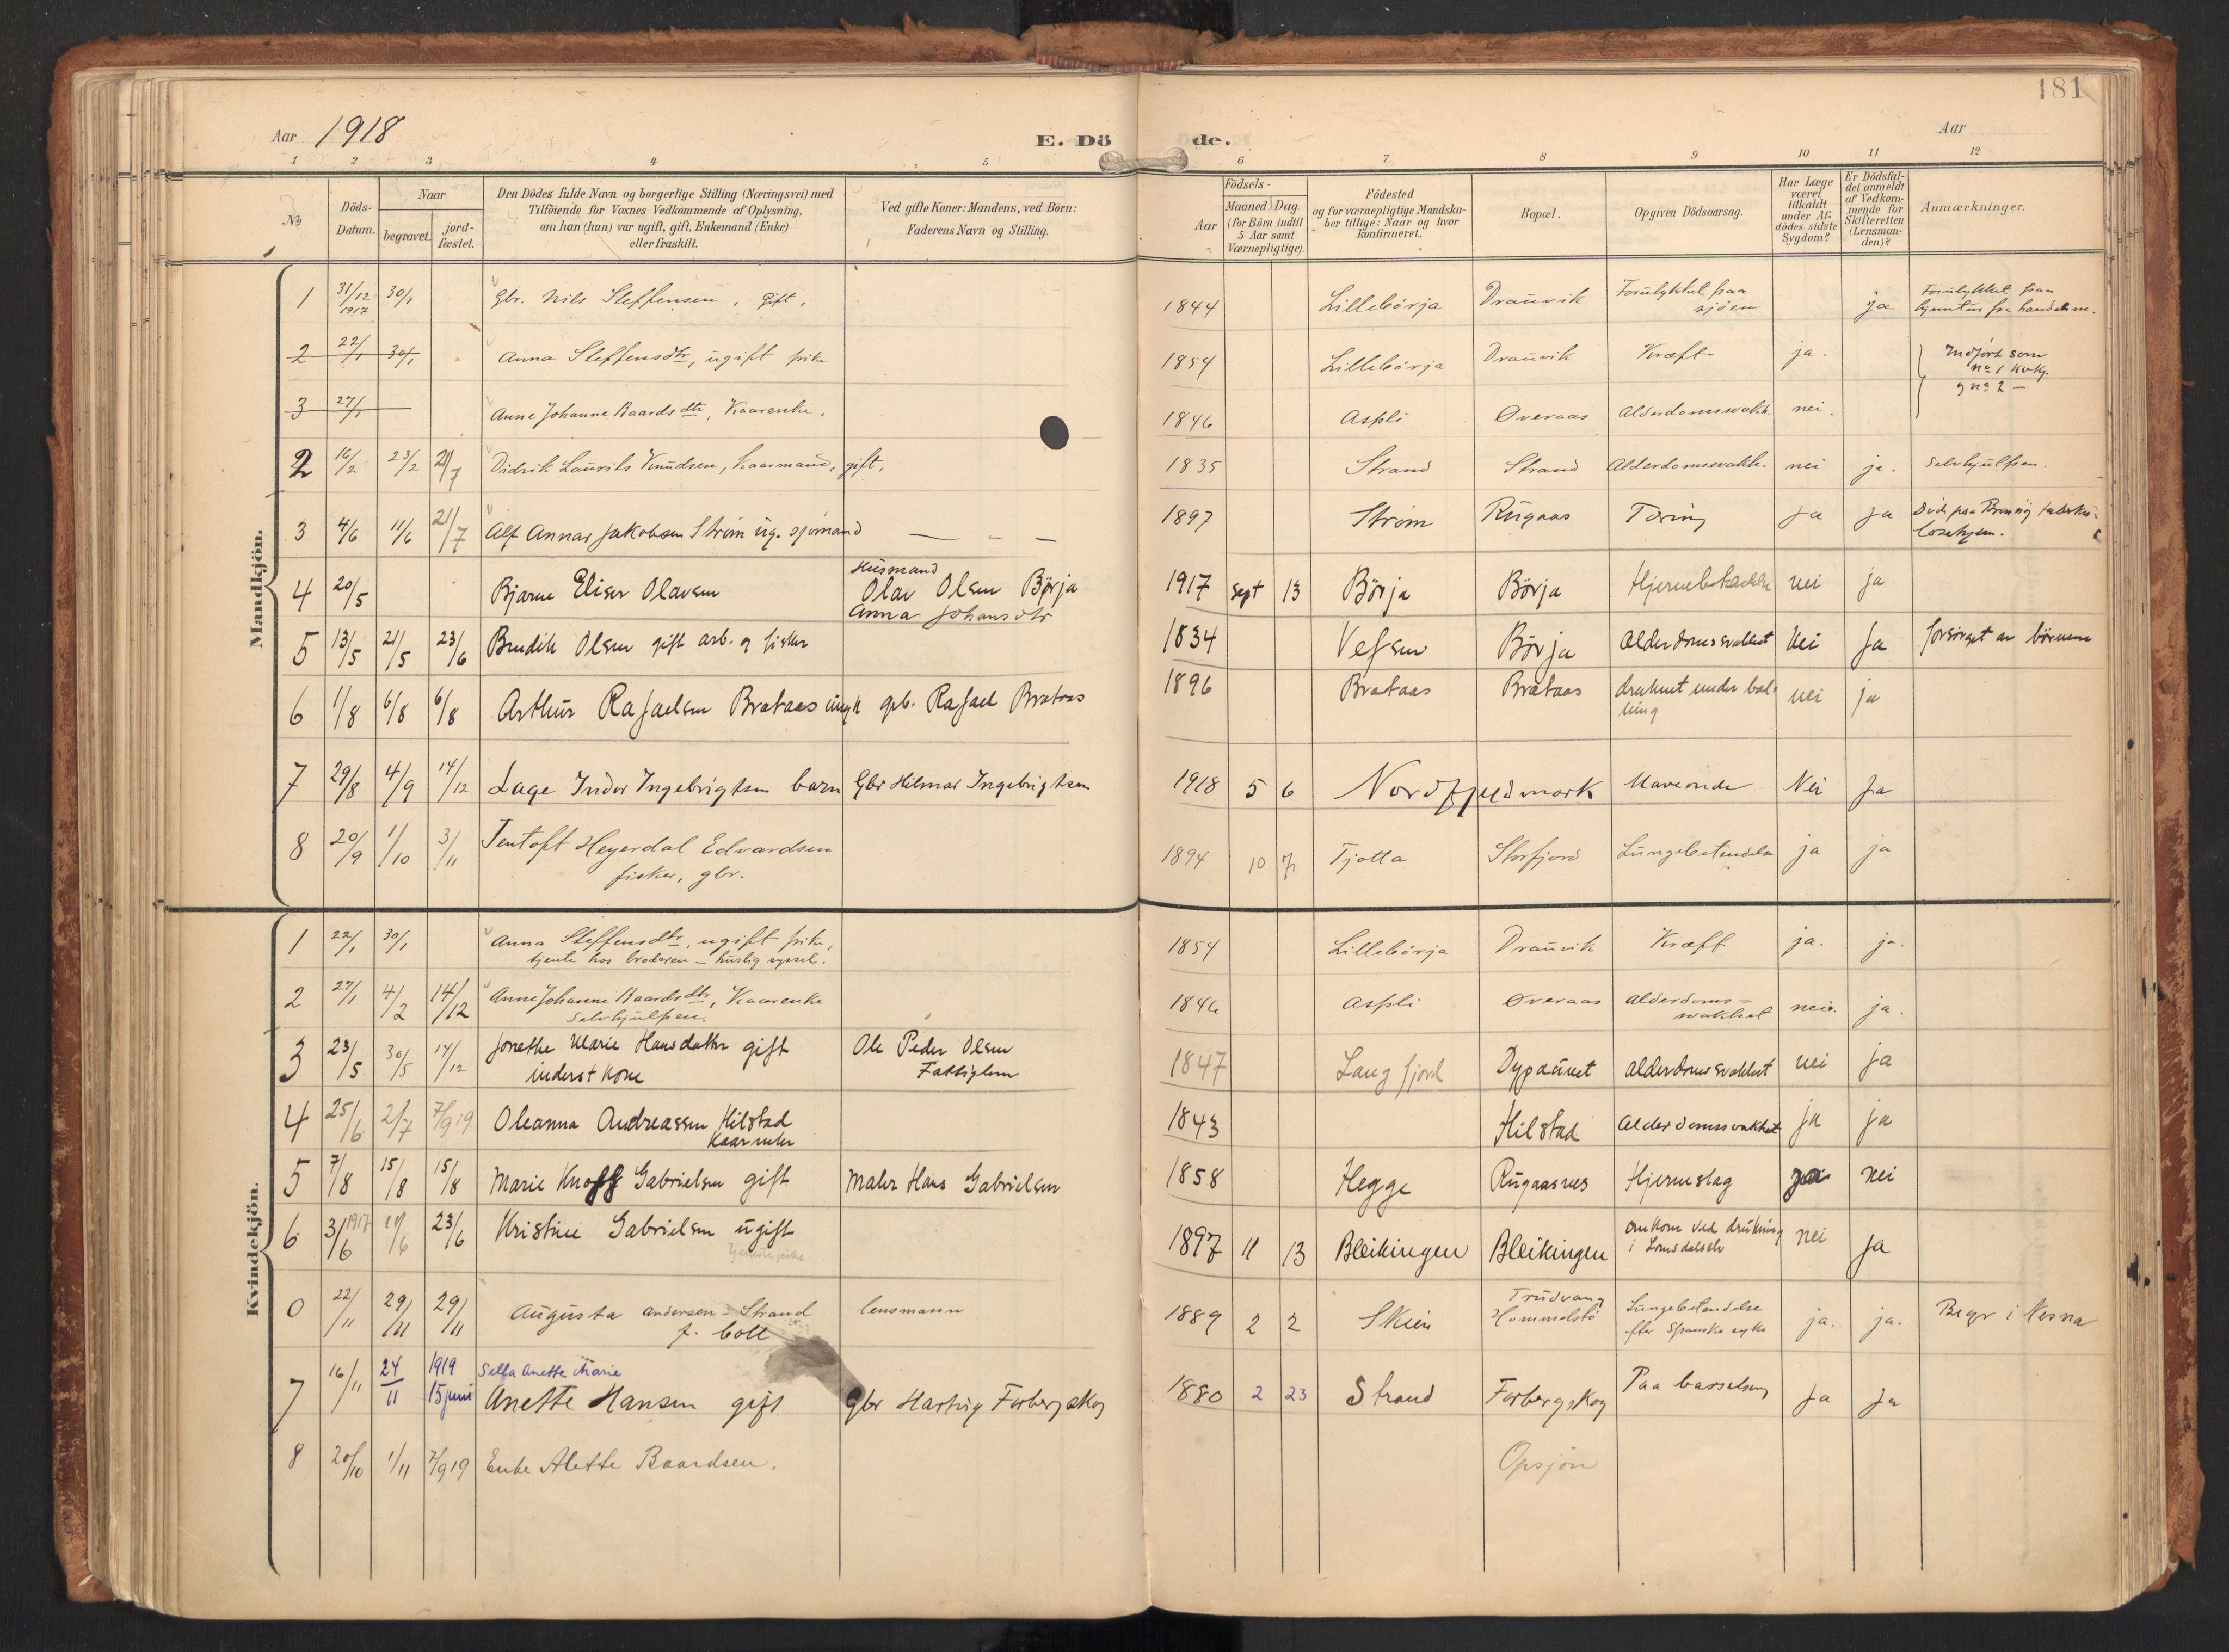 181
Aar 1918
E. Dö
de.
Aar
1 2 3 4 5 6 7 8 9 10 11 12
No
Döds-
Datum.
Naar
begravet.
jord-
fæstet.
Den Dödes fulde Navn og borgerlige Stilling (Næringsvei) med
Tilföiende for Voxnes Vedkommende af Oplysning,
om han (hun) var ugift, gift, Enkemand (Enke)
eller fraskilt.
Ved gifte Koner: Mandens, ved Börn:
Faderens Navn og Stilling.
Födsels-
Aar
Maaned Dag.
(for Börn indtil
5 Aar samt
Værnepligtige).
Födested
og for værnepligtige Mandska-
ber tillige: Naar og hvor
konfirmeret.
Bopæl.
Opgiven Dödsaarsag.
Har Læge
været
tilkaldt
under Af-
dödes sidste
Sygdom?
Er Dödsfal-
det anmeldt
af Vedkom-
mende for
Skifteretten
(Lensman-
den)?
Anmærkninger.
Mandkjön.
1 31/12 1917 30/1 Gbr. Nils Steffensen, gift, 1844 Lillebörja Drauvik Forulykket paa
sjöen ja Forulykket paa
hjemtur fra
2 22/1 30/1 Anna Steffensdtr, ugift pike 1854 Lillebörja Drauvik Kræft ja. Indfört som
no 1 kvkj.
3 27/1 Anne Johanne Baardsdtr, Kaarenke, 1846 Aspli Överaas Alderdomssvakh. nei. og no 2 —
2 16/2 23/2 21/7 Didrik Laurits Knudsen, kaarmand, gift, 1835 Strand Strand Alderdomssvakh. nei ja. Selvhjulpen.
3 4/6 11/6 21/7 Alf Annar Jakobsen Ström ug. sjömand — - — 1897 Ström Rugaas Tæring ja ja Död paa tuberku-
losehjem.
4 20/5 Bjarne Eliser Olavsen Husmand
Olav Olsen Börja
Anna Johansdtr 1917 sept 13 Börja Börja nei ja
5 13/5 21/5 23/6 Olsen gift arb. og fisker 1834 Vefsen Börja Alderdomssvakhet Nei Ja forsörget av börnene
6 1/8 6/8 6/8 Arthur Rafaelsen Brataas ungk gbr. Rafael Brataas 1896 Brataas Brataas druknet under bad-
ning nei ja
7 29/8 4/9 14/12 Lage Indor Ingebrigtsen barn Gbr Hilmar Ingebrigtsen 1918 5 6 Maveonde Nei Ja
8 20/9 1/10 3/11 Tentoft Heyerdal Edvardsen
fisker, gbr. 1894 10 7 Tjotta Storfjord Lungebetendelse ja ja
Kvindekjön.
1 22/1 30/1 Anna Steffensdtr, ugift pike,
tjente hos broderen — huslig syssel. 1854 Lillebörja Drauvik Kræft ja. ja.
2 27/1 4/2 14/12 Anne Johanne Baardsdtr, Kaarenke
Selvhjulpen. 1846 Aspli Överaas Alderdoms-
svakhet nei. ja.
3 23/5 30/5 14/12 Jonethe Marie Hansdatter gift
inderst kone Ole Peder Olsen
Fattiglem 1847 Langfjord Dypaunet alderdomssvakhet nei ja
4 25/6 2/7 7/9 19 Oleanna Andreassen Hilstad
Kaarenke 1843 Hilstad Alderdomssvakhet ja ja
5 7/8 15/8 15/8 Marie Knoff Gabrielsen gift Maler Hans Gabrielsen 1858 Hegge Rugaasnes Hjerneslag ja nei
6 3/6 1917 11/6 23/6 Kristine Gabrielsen ugift
1897 11 13 Bleikingen Bleikingen omkom ved drukning
i nei ja
0 22/11 29/11 29/11 Augusta Andersen - Strand
f. Coll lensmann 1889 2 2 Skien Trudvang
Hommelstö Lungebetendelse
efter Spanske syke ja. ja. Begr i Nesna
7 16/11 24/11 1919
15 juni Sella Anette Marie
Anette Hansen gift Gbr Hartvig Forbergskog 1880 2 23 Strand Forbergskog Paa barselseng Ja Ja
8 20/10 1/11 7/9 19 Enke Alette Baardsen. Opsjön